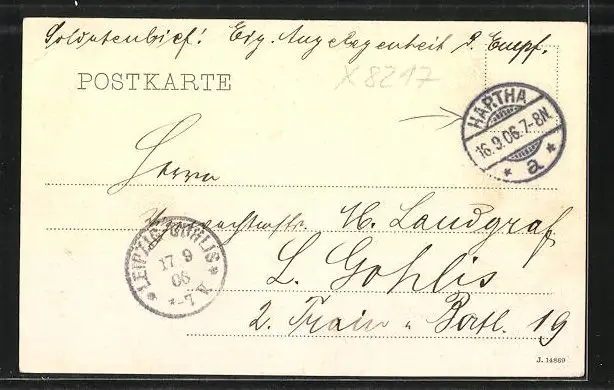 Soldatenbrief! Eig. Angelegenheit d. Empf.
POSTKARTE
X8217
HARTHA
16.9.06.7-8N.
* a *
Herrn
H. Landgraf
LEIPZIG-GOHLIS
17 9
06
*-7 V.
L. Gohlis
2. Train Batl. 19
J. 14869